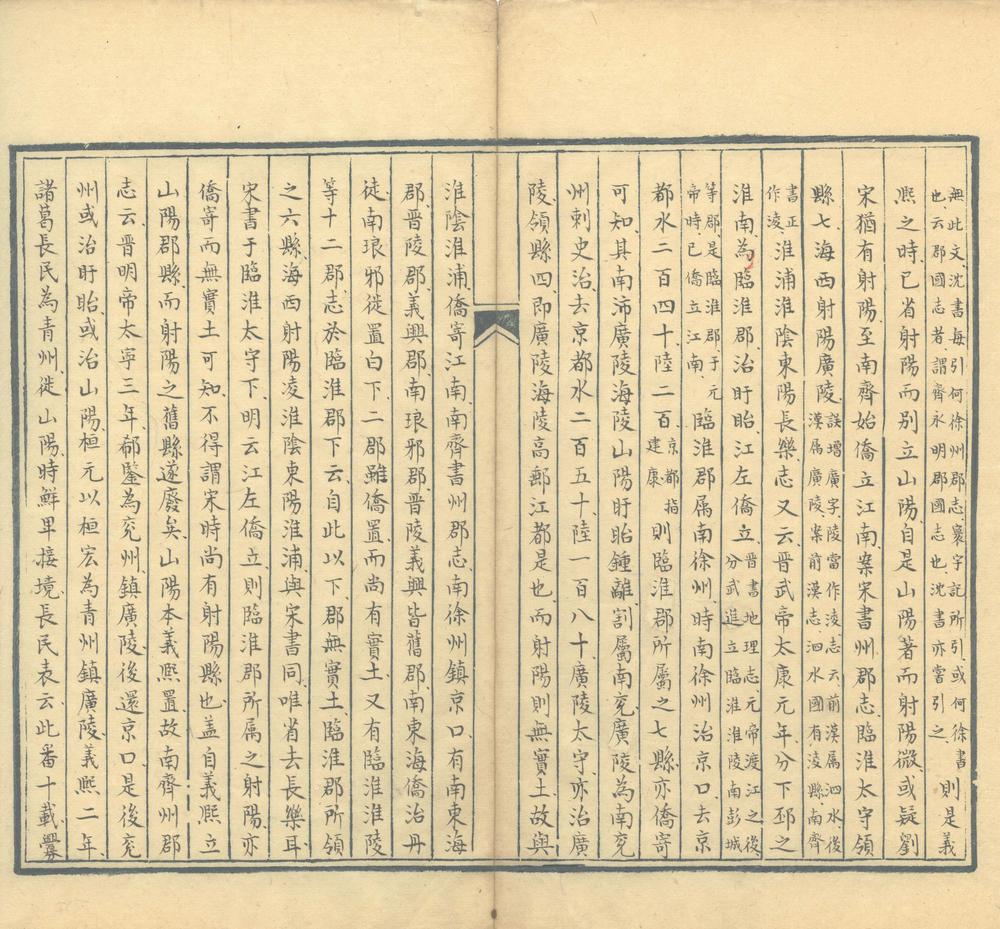 無此文沈書每引何徐州郡志寰宇記所引或何徐書
也云郡國志者謂齊永明郡國志也沈書亦嘗引之
則是義
熙之時已省射陽而别立山陽自是山陽著而射陽微或疑劉
宋猶有射陽至南齊始僑立江南案宋書州郡志臨淮太守領
縣七海西射陽廣陵
誤增廣字陵當作淩志云前漢屬泗水後
漢屬廣陵案前漢志泗水國有淩縣南齊
書正
作淩
淮浦淮陰東陽長樂志又云晉武帝太康元年分下邳之
淮南為臨淮郡治盱眙江左僑立
晉書地理志元帝渡江之後
分武進立臨淮淮陵南彭城
等郡是臨淮郡于元
帝時已僑立江南
臨淮郡屬南徐州時南徐州治京口去京
都水二百四十陸二百
京都指
建康
則臨淮郡所屬之七縣亦僑寄
可知其南沛廣陵海陵山陽盱眙鍾離割屬南兖廣陵為南兖
州刺史治去京都水二百五十陸一百八十廣陵太守亦治廣
陵領縣四即廣陵海陵高郵江都是也而射陽則無實土故與
淮陰淮浦僑寄江南南齊書州郡志南徐州鎮京口有南東海
郡晉陵郡義興郡南琅邪郡晉陵義興皆舊郡南東海僑治丹
徒南琅邪徙置白下二郡雖僑置而尚有實土又有臨淮淮陵
等十二郡志於臨淮郡下云自此以下郡無實土臨淮郡所領
之六縣海西射陽淩淮陰東陽淮浦與宋書同唯省去長樂耳
宋書于臨淮太守下明云江左僑立則臨淮郡所属之射陽亦
僑寄而無實土可知不得謂宋時尚有射陽縣也盖自義熙立
山陽郡縣而射陽之舊縣遂廢矣山陽本義熙置故南齊州郡
志云晉明帝太寧三年郗鑒為兖州鎮廣陵後還京口是後兖
州或治盱眙或治山陽桓元以桓宏為青州鎮廣陵義熙二年
諸葛長民為青州徙山陽時鮮卑接境長民表云此番十載釁